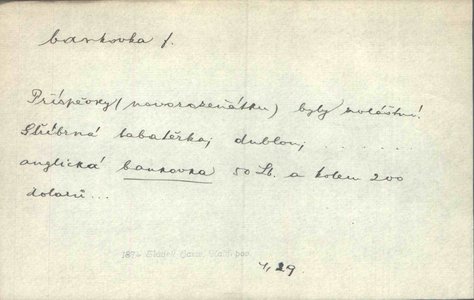 bankovka f.
Příspěvky (novorozeňátku) byly zvláštní:
Stříbrná tabatěrka, dublon, . . . . . .
anglická bankovka 50 Lb. a kolem 200
dolarů...
187
4, 29.